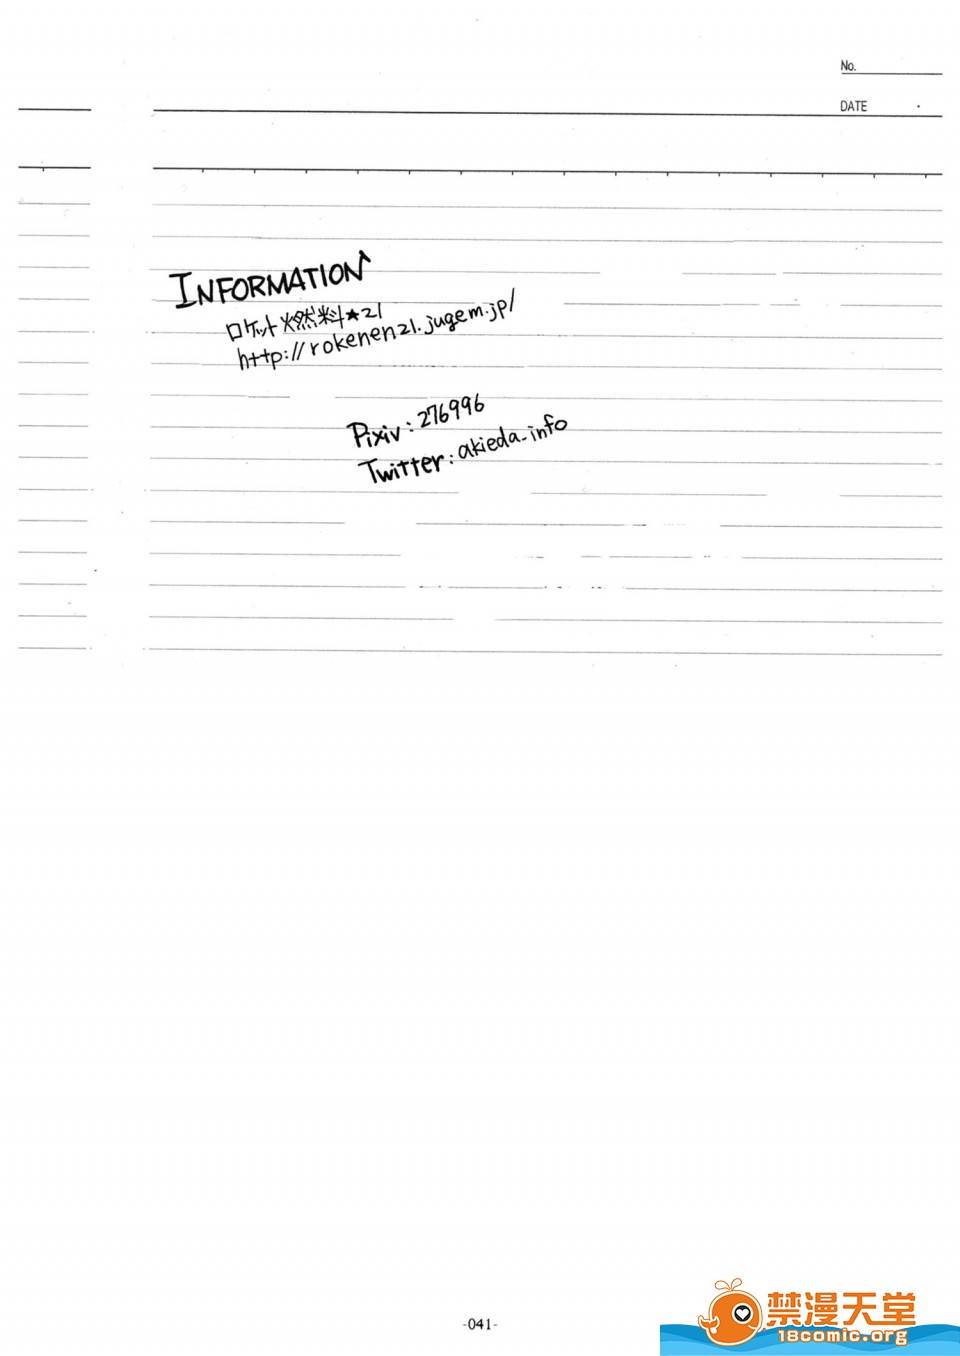 No.
DATE
INFORMATION
ロケット燃料★21
http://rokenen21.jugem.jp/
Pixiv:276996
Twitter:akieda_info
-041-
禁漫天堂
18comic.org